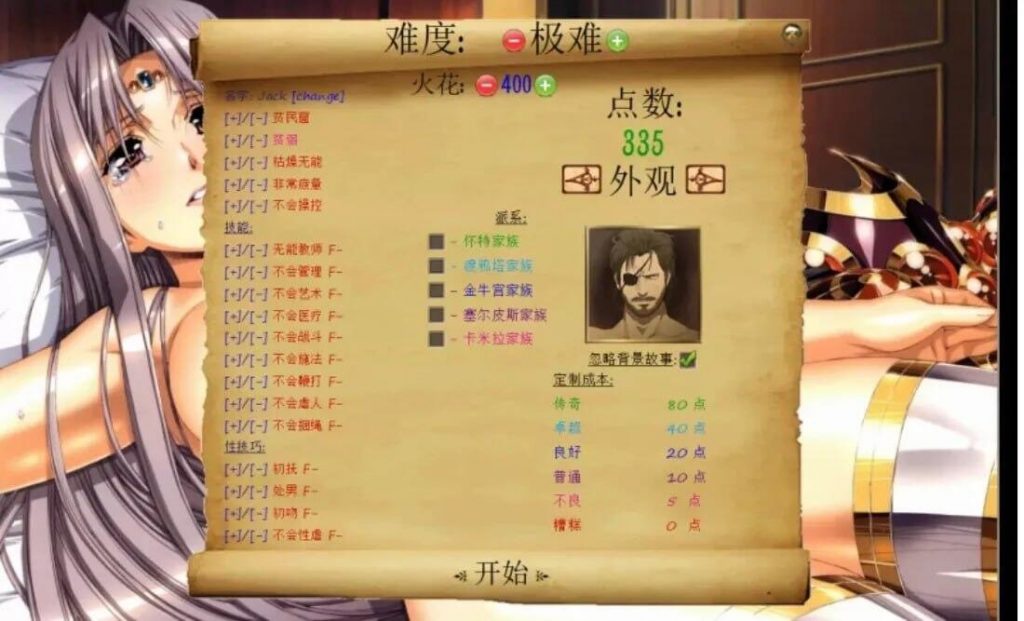 难度: 极难
火花: 400
名字: Jack [change]
[+]/[-] 贫民窟
[+]/[-] 贫弱
[+]/[-] 枯燥无能
[+]/[-] 非常疲惫
[+]/[-] 不会操控
技能:
[+]/[-] 无能教师 F-
[+]/[-] 不会管理 F-
[+]/[-] 不会艺术 F-
[+]/[-] 不会医疗 F-
[+]/[-] 不会战斗 F-
[+]/[-] 不会施法 F-
[+]/[-] 不会鞭打 F-
[+]/[-] 不会虐人 F-
[+]/[-] 不会捆绳 F-
性技巧:
[+]/[-] 初抚 F-
[+]/[-] 处男 F-
[+]/[-] 初吻 F-
[+]/[-] 不会性虐 F-
派系:
- 怀特家族
- 渡鸦塔家族
- 金牛宫家族
- 塞尔皮斯家族
- 卡米拉家族
点数:
335
外观
忽略背景故事:
定制成本:
传奇 80 点
卓越 40 点
良好 20 点
普通 10 点
不良 5 点
糟糕 0 点
开始